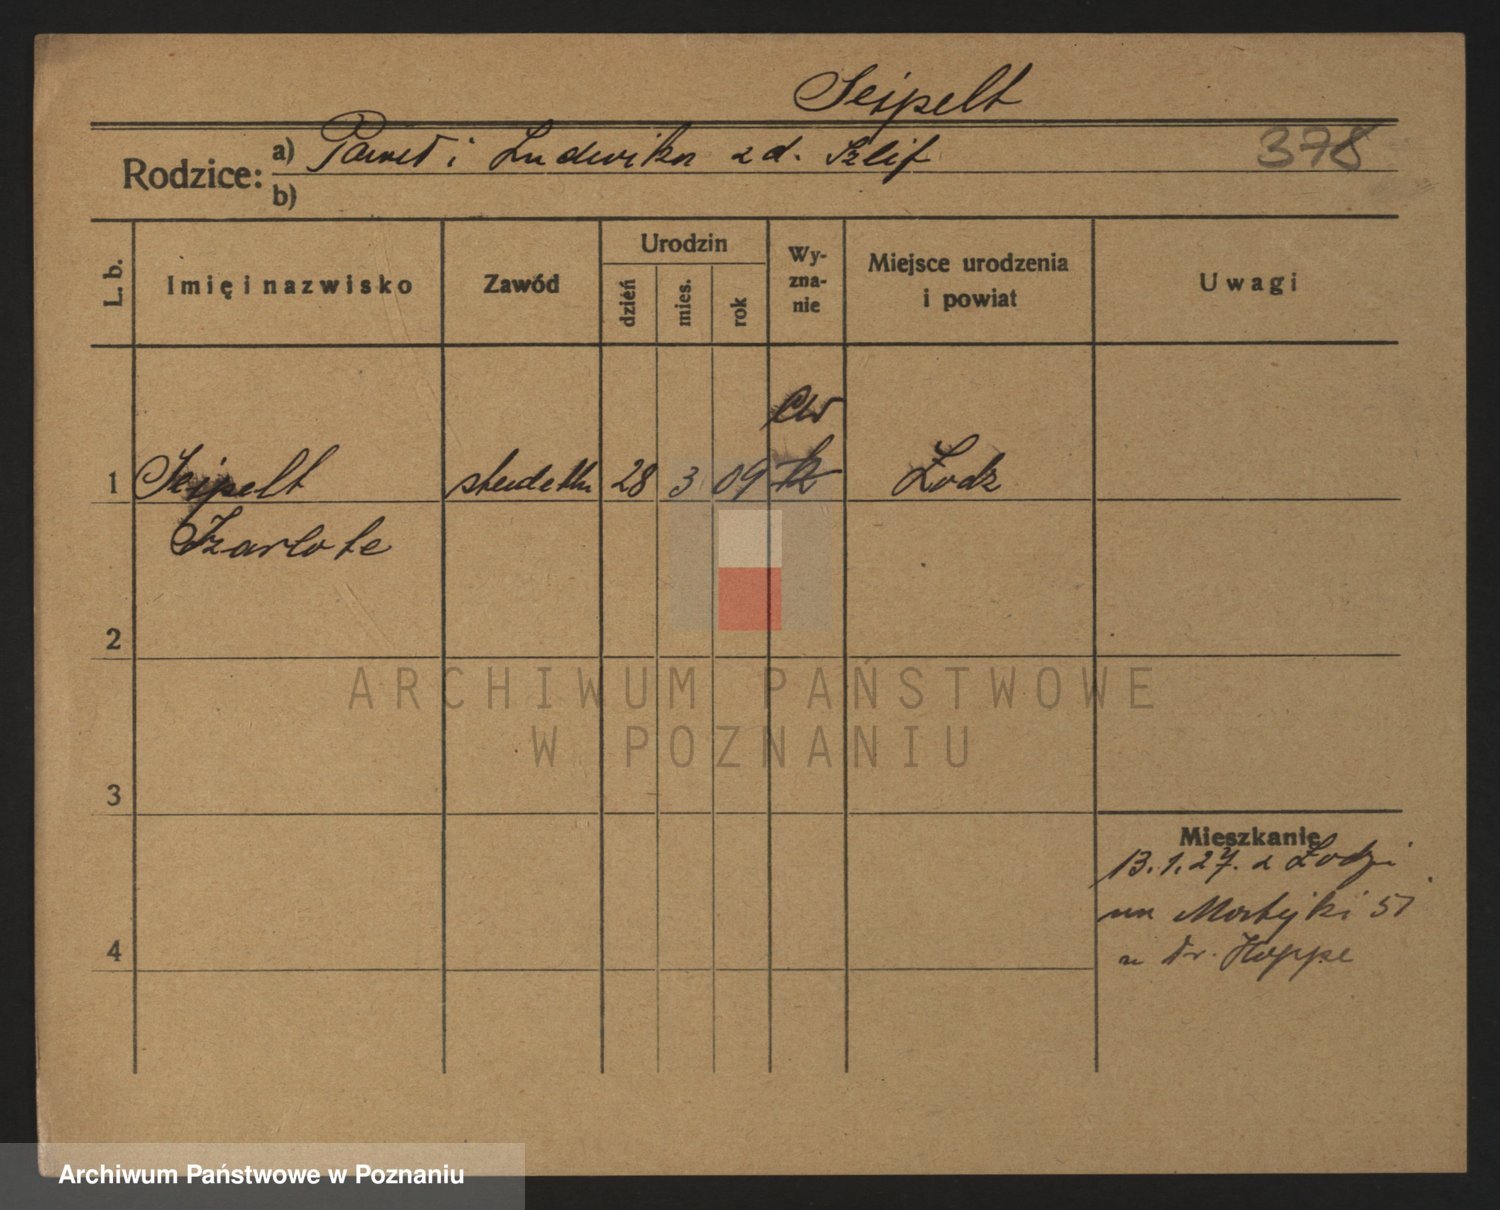 Seipelt
Rodzice: a) Paweł i Ludwika z d. Szlif 378
b)
L. b. Imię i nazwisko Zawód Urodzin dzień mies. rok Wy-zna-nie Miejsce urodzenia i powiat Uwagi
ew
1 Seipelt 28 3 09 rk Łodz
Szarlote
2
ARCHIWUM PAŃSTWOWE
W POZNANIU
3
Mieszkanie
13.1.27. z Łodzi
na Matejki 51
u dr. Hoppe
4
Archiwum Państwowe w Poznaniu